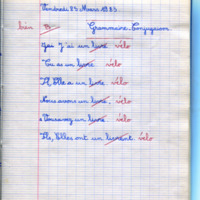 Vendredi 25 Mars 1983
bien B Grammaire. Conjugaison
j'ai J'ai un livre vélo
Tu as un livre. vélo
Il Elle a un livre. vélo
Nous avons un livre. vélo
Vous avez un livre vélo
Ils, Elles ont un livrent vélo